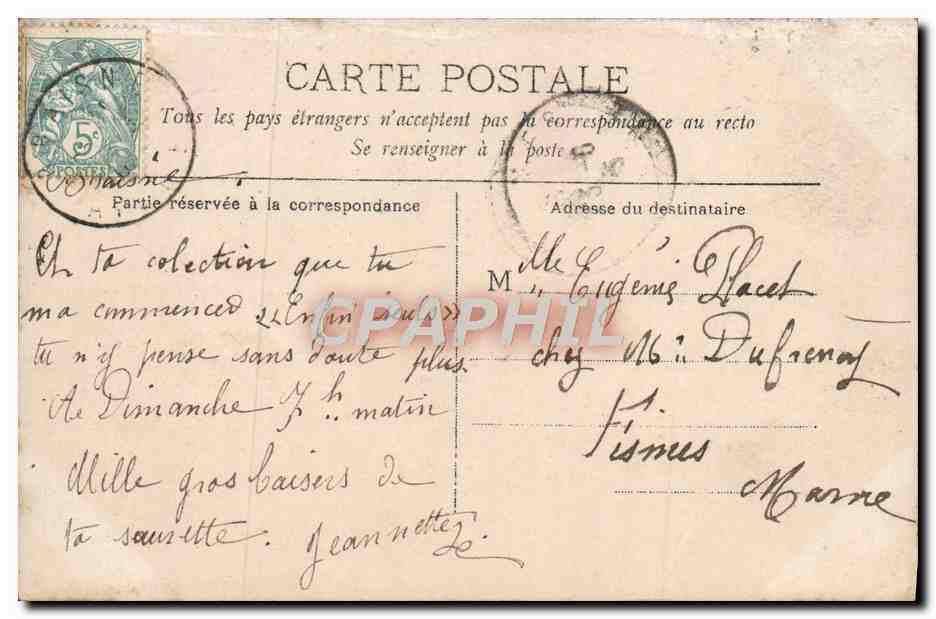 CARTE POSTALE
Tous les pays étrangers n'acceptent pas la correspondance au recto
Se renseigner à la poste
5c
POSTES
Braisne
Partie réservée à la correspondance
Et ta colection que tu
ma commenced «Enfin seuls»
tu n'y pense sans doute plus
A Dimanche 7h matin
Mille gros baisers de
ta sœurette. Jeannette
Adresse du destinataire
M lle Eugénie Placet
chez Mr Dufrenoy
Fismes
Marne
CPAPHIL